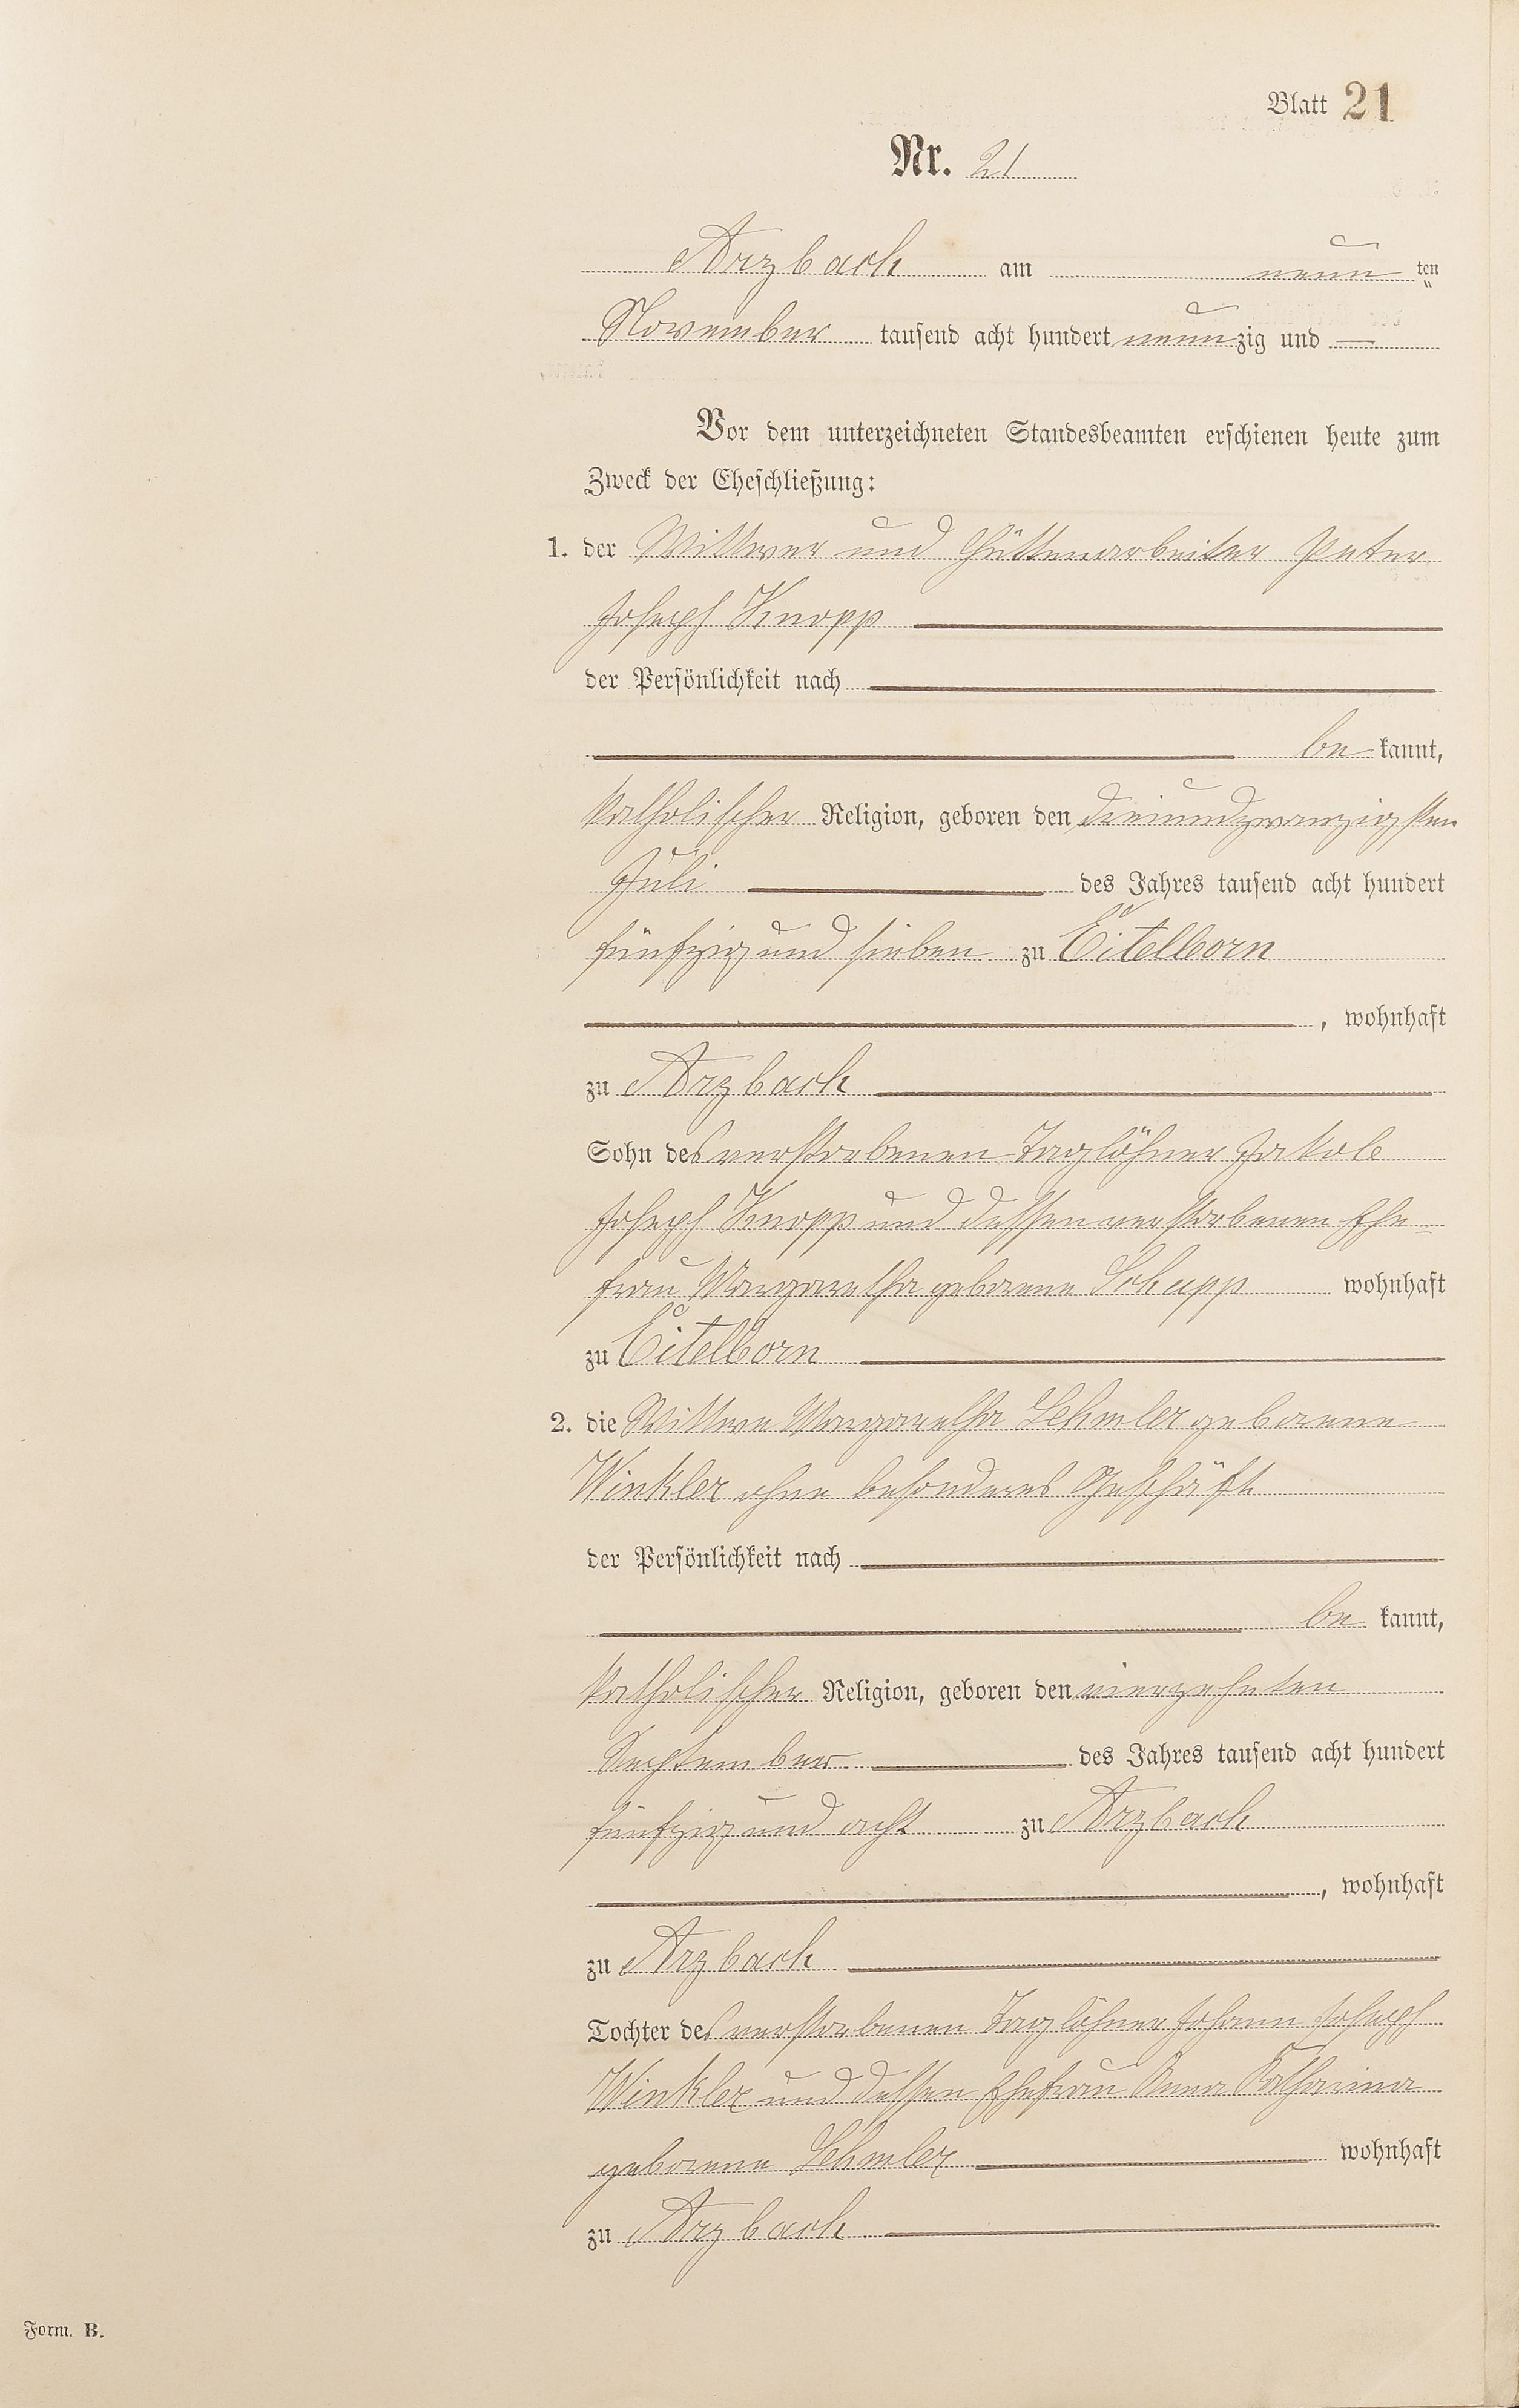 Blatt 21
Nr. 21
Arzbach am neun ten
November tausend acht hundert neunzig und —
Vor dem unterzeichneten Standesbeamten erschienen heute zum
Zweck der Eheschließung:
1. der Wittwer und Hüttenarbeiter Peter
Joseph Knopp
der Persönlichkeit nach
be kannt,
katholischer Religion, geboren den dreiundzwanzigsten
Juli des Jahres tausend acht hundert
fünfzig und sieben zu Eitelborn
, wohnhaft
zu Arzbach
Sohn des verstorbenen Taglöhner Jakob
Joseph Knopp und dessen verstorbenen Ehe-
frau Margaretha geborene Schupp wohnhaft
zu Eitelborn
2. die Wittwe Margaretha Lehmler geborene
Winkler ohne besonderes Geschäft
der Persönlichkeit nach
be kannt,
katholischer Religion, geboren den vierzehnten
September des Jahres tausend acht hundert
fünfzig und acht zu Arzbach
, wohnhaft
zu Arzbach
Tochter des verstorbenen Taglöhner Johann Joseph
Winkler und dessen Ehefrau Anna Katharina
geborene Lehmler wohnhaft
zu Arzbach
Form. B.